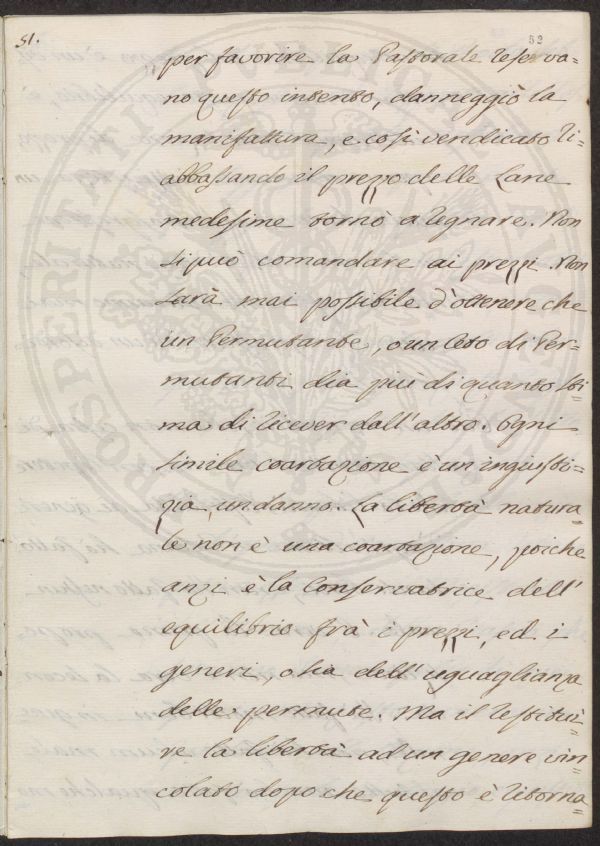 51.
52
per favorire la Pastorale reserva=
no questo intento, danneggiò la
manifattura, e così vendicato ri=
abbassando il prezzo delle Lane
medesime tornò a regnare. Non
si può comandare ai prezzi. Non
sarà mai possibile d'ottenere che
un Permutante, o un Ceto di Per=
mutanti dia più di quanto sti=
ma di ricever dall'altro. Ogni
simile coartazione è un ingiusti=
zia, un danno. La libertà natura=
le non è una coartazione, poiche
anzi è la Conservatrice dell'
equilibrio frà i prezzi, ed i
generi, o sia dell'uguaglianza
delle permute. Ma il restitui=
re la libertà ad un genere vin=
colato dopo che questo è ritorna=